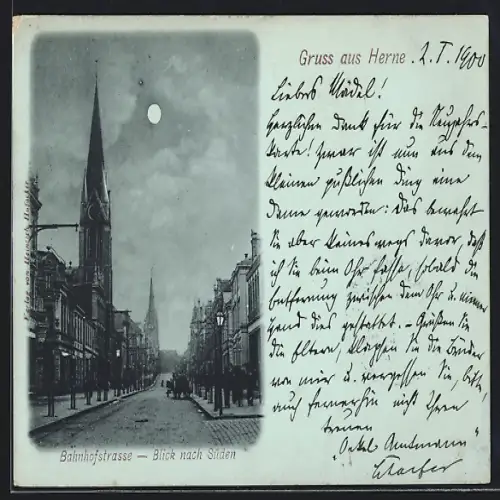 Gruss aus Herne. 2. I. 1900
Liebes Mädel!
Herzlichen Dank für die Neujahrs-
karte! Zwar ist nun aus dem
kleinen pußlichen Ding eine
Dame geworden: Das bewahrt
Sie aber keineswegs davor, daß
ich Sie beim Ohr fasse, sobald die
Entfernung zwischen dem Ohr u.
dies gestattet. – Grüßen Sie
die Eltern, Sie die Kinder
von mir u. vergessen Sie, bitte,
auch fernerhin nicht Ihren
treuen
"Onkel Amtmann"
Bahnhofstrasse — Blick nach Süden